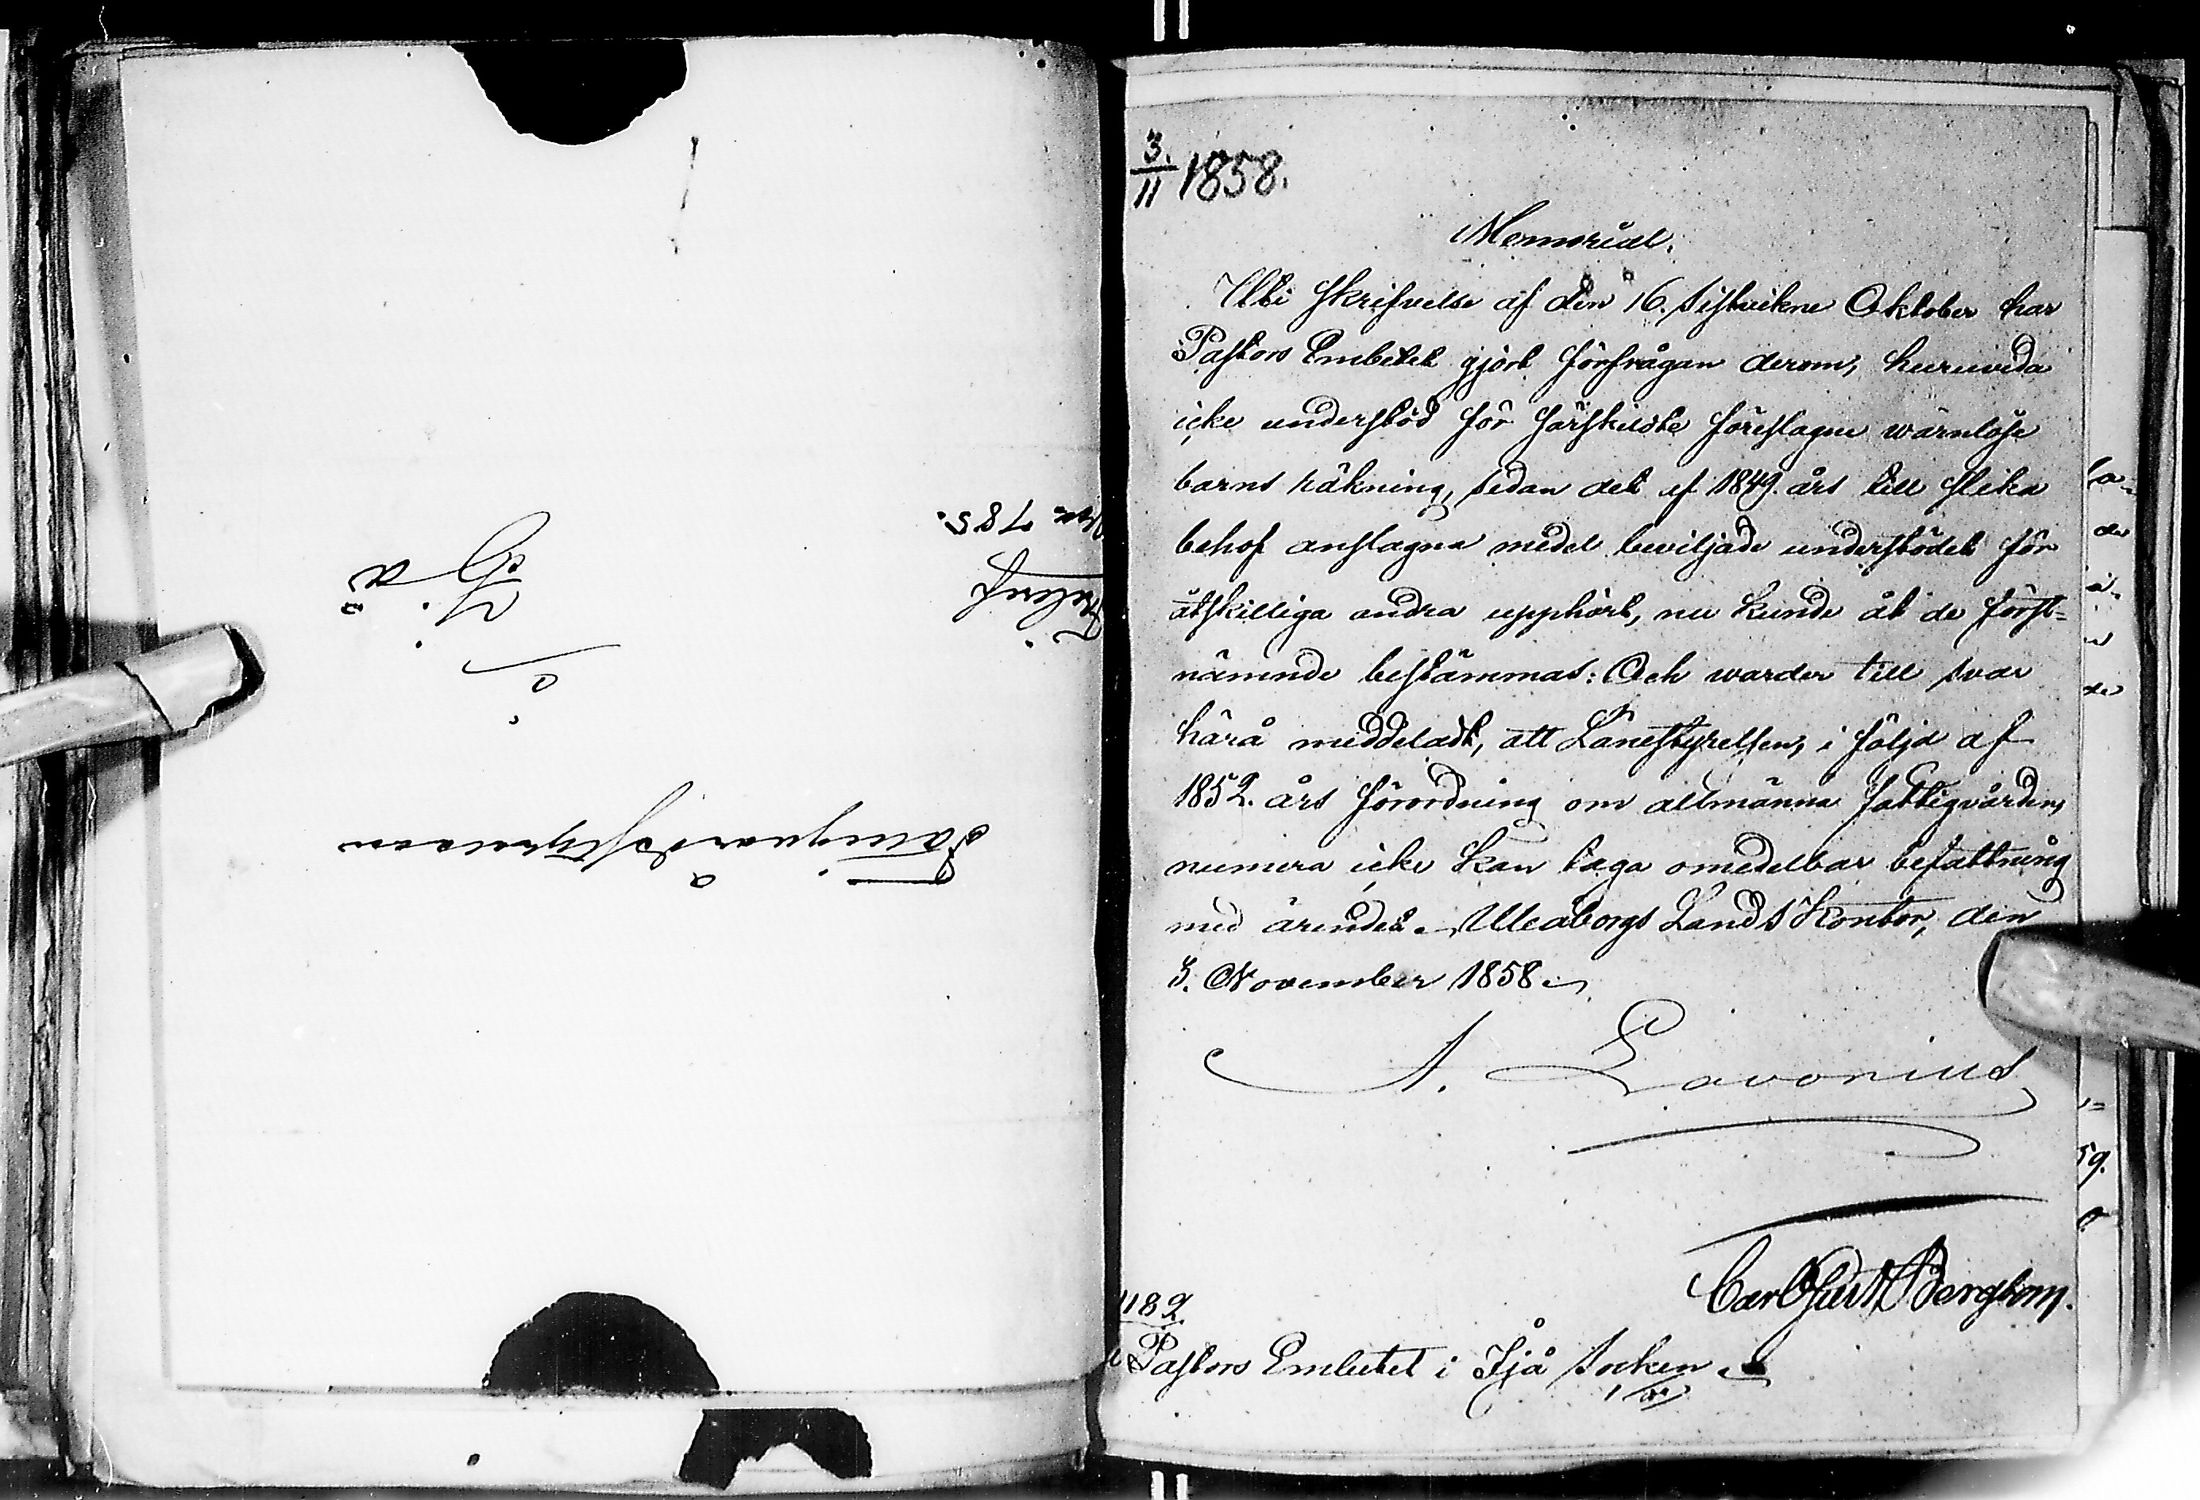 3./11 1858.
Memorial.
Uti skrifvelse af den 16. sistvikne Oktober har
Pastors Embetet gjort förfrågan derom, huruvida
icke understöd för särskildte föreslagne wärnlöse
barns räkning, sedan det af 1849. års till slika
behof anslagna medel beviljade understödet för
åtskilliga andra upphört, nu kunde åt de först-
nämnde bestämmas: Och warder till svar
härå meddeladt, att Länestyrelsen, i följd af
1852. års förordning om allmänna fattigvården,
numera icke kan taga omedelbar befattning
med ärendet. Uleåborgs Lands Kontor, den
3. November 1858.
A. Lavonius
Carl Gust Bergbom.
1182
Pastors Embetet i Ijå Socken
i